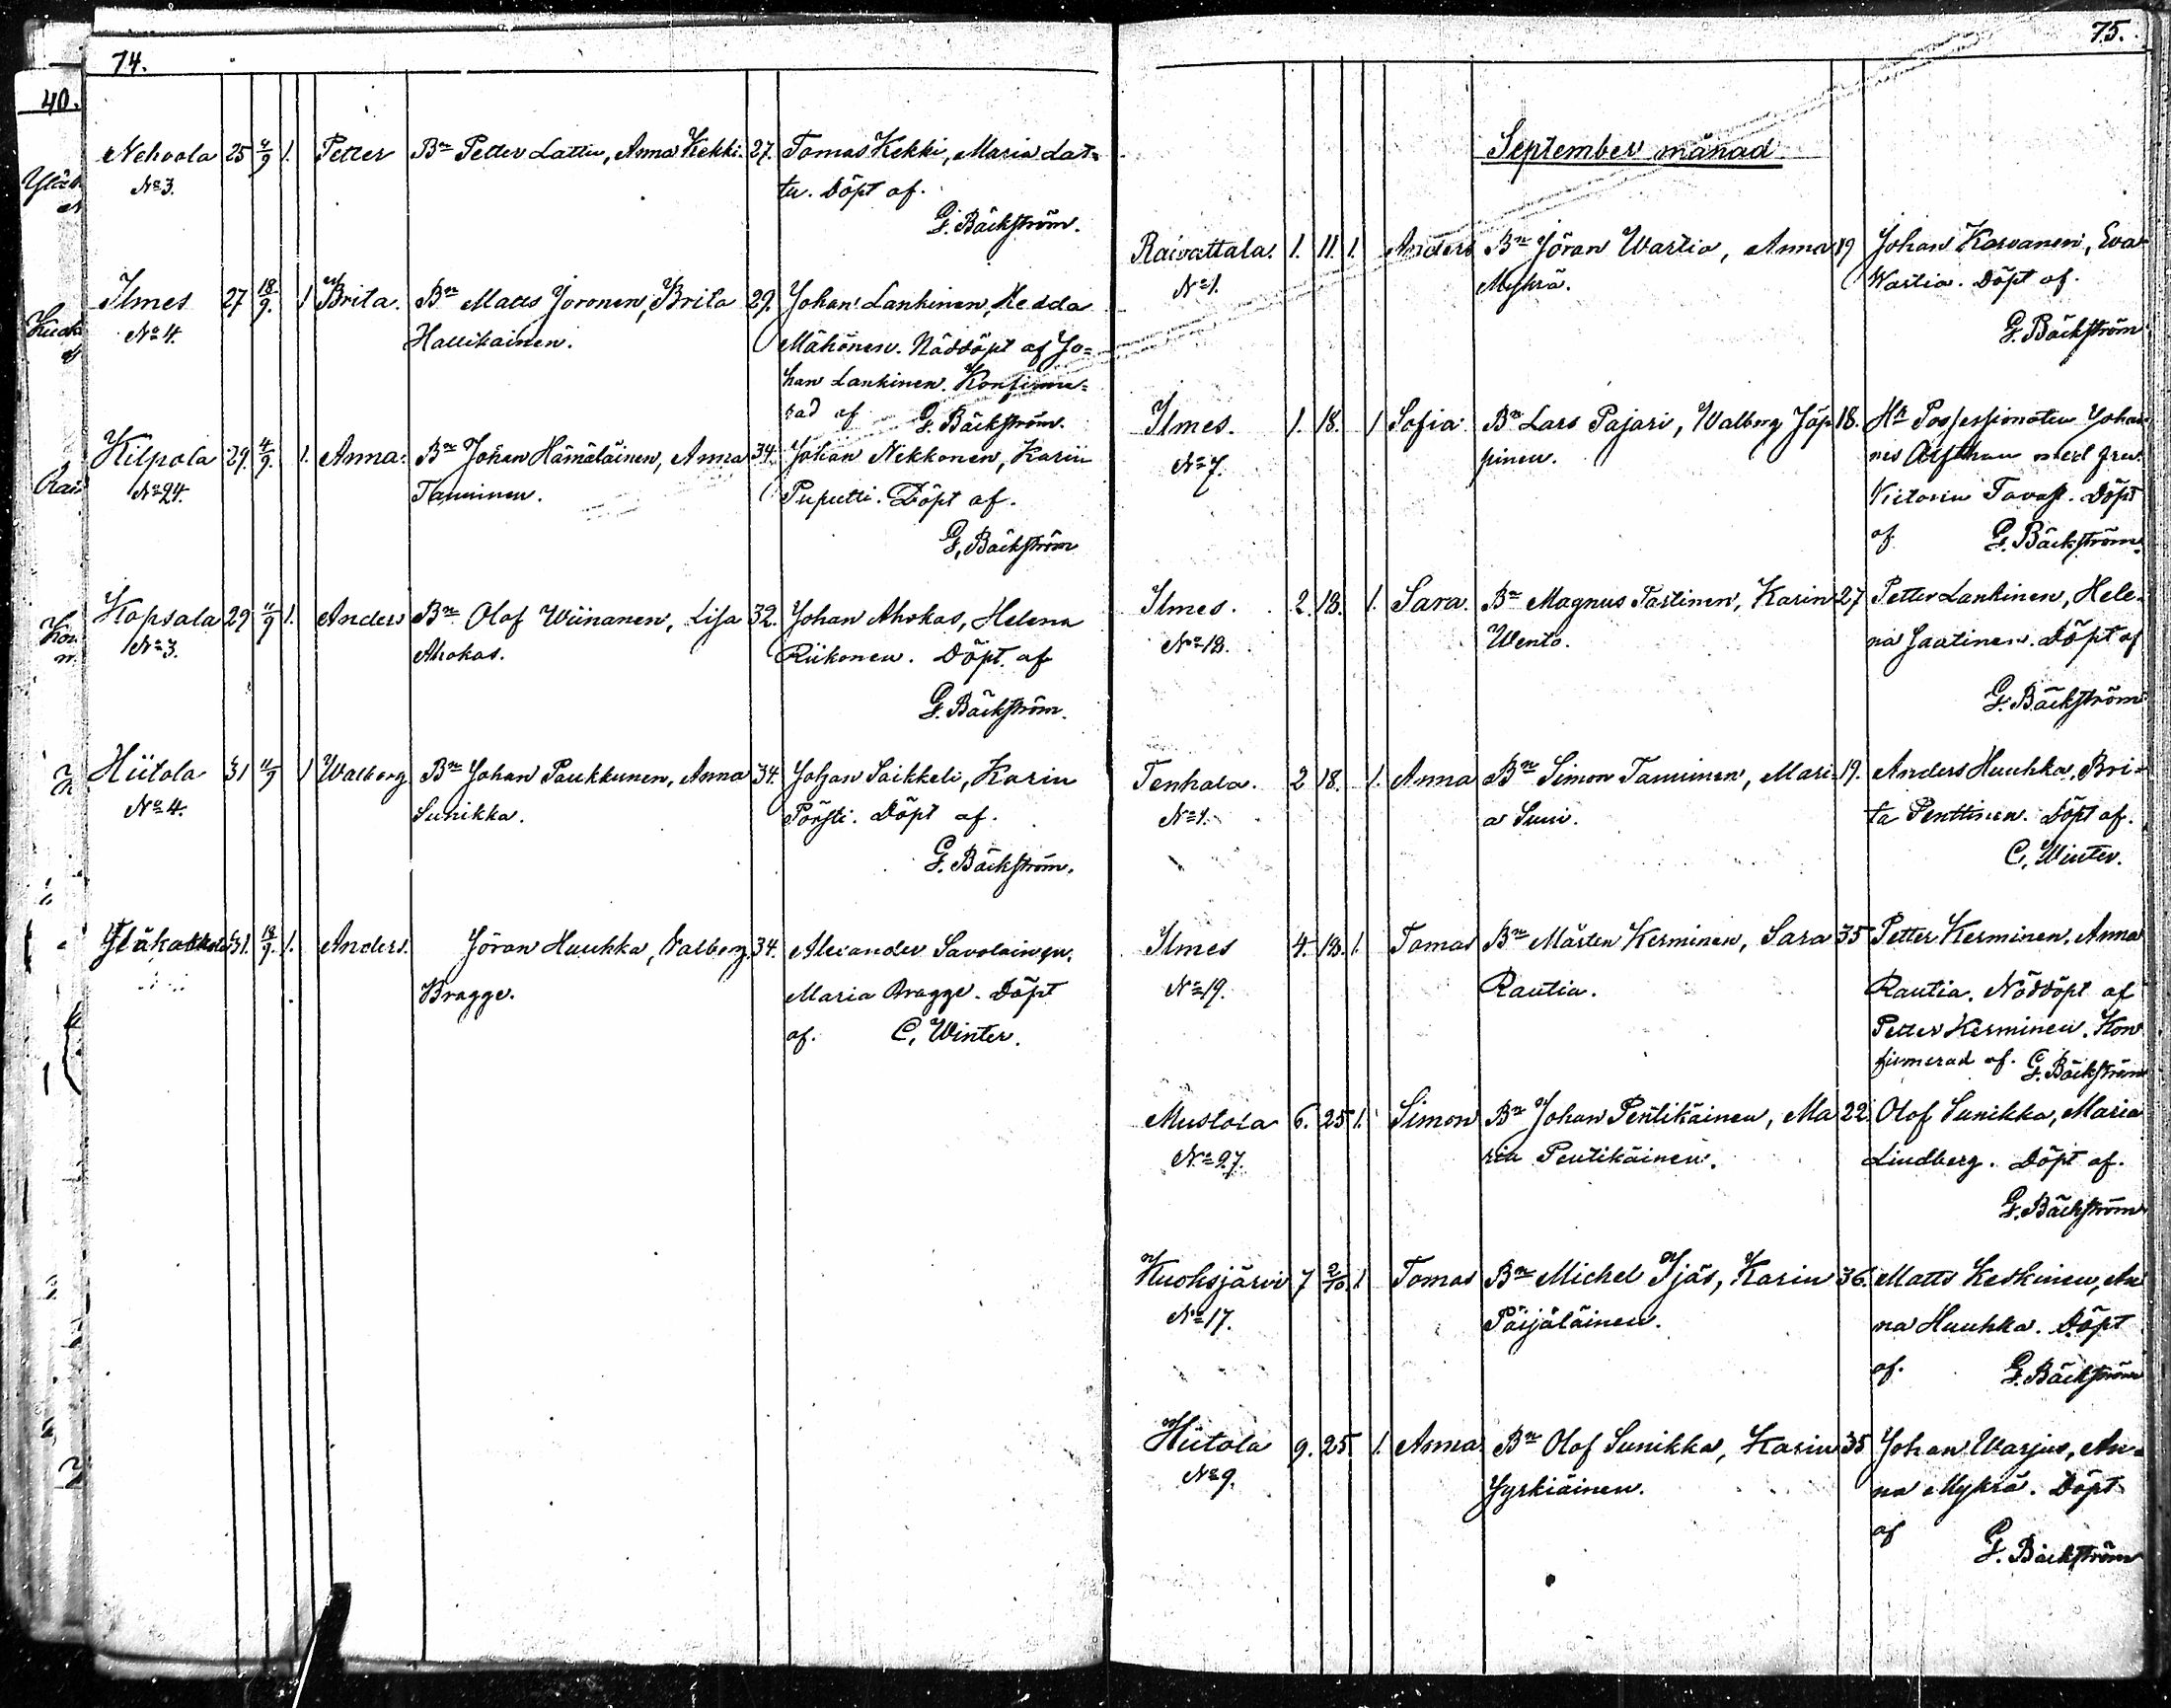 74.
40.
Nehvola 25 4/9 1. Petter Bn Petter Lattu, Anna Kekki. 27. Tomas Kekki, Maria Lat=
No 3. tu. Döpt af.
G. Bäckström.
Ilmes 27 18/9. 1 Brita. Bn Matts Joronen, Brita 29. Johan Lankinen, Hedda
No 4. Hallikainen. Mähönen. Nöddöpt af Jo=
han Lankinen. Konfirme=
rad af G. Bäckström.
Kilpola 29. 4/9. 1. Anna. Bn Johan Hämäläinen, Anna 34. Johan Nekkonen, Karin
No 24. Tamminen. Puputti. Döpt af.
G. Bäckström
Kopsala 29 11/9 1. Anders Bn Olof Wiinanen, Lisa 32. Johan Ahokas, Helena
No 3. Ahokas. Riikonen. Döpt af
G. Bäckström.
Hiitola 31 11/9 1 Walborg Bn Johan Paukkunen, Anna 34. Johan Saikkeli, Karin
No 4. Sunikka. Pörsti. Döpt af.
G. Bäckström.
31. 18/9. 1. Anders. Jöran Huuhka, Valborg 34. Alexander Savolainen,
Bragge. Maria Bragge. Döpt
af. C. Winter.
75.
September månad
Raivattala. 1. 11. 1. Anders Bn Jöran Wartia, Anna 19 Johan Karvanen, Eva
No 1. Mykrä. Wartia. Döpt af.
G. Bäckström
Ilmes. 1. 18. 1 Sofia Bn Lars Pajari, Walborg Jäp- 18. Johan
No 7. pinen. nes med fru
Victoria Tavast. Döpt
af G. Bäckström.
Ilmes. 2. 18. 1. Sara. Bn Magnus Partinen, Karin 27 Petter Lankinen, Hele-
No 18. Wento. na Saatinen. Döpt af
G. Bäckström
Tenhala. 2 18. 1. Anna Bn Simon Tamminen, Mari- 19. Anders Huuhka, Bri-
No 1. a Suni. ta Penttinen. Döpt af.
C. Winter.
Ilmes 4. 18. 1. Tomas Bn Mårten Kerminen, Sara 35 Petter Kerminen, Anna
No 19. Rautia. Rautia. Nöddöpt af
Petter Kerminen. Kon
firmerad af. G. Bäckström
Mustola 6. 25 1. Simon Bn Johan Pentikäinen, Ma 22. Olof Sunikka, Maria
No 27. ria Pentikäinen. Lindberg. Döpt af.
G. Bäckström
Kuoksjärvi 7 2/10. 1 Tomas Bn Michel Ijäs, Karin 36. Matts Keskinen, An
No 17. Pärjäläinen. na Huuhka. Döpt
af. G. Bäckström
Hiitola 9. 25. 1. Anna Bn Olof Sunikka, Karin 35 Johan Warjus, An=
No 9. Jyrkiäinen. na Mykrä. Döpt
af G. Bäckström